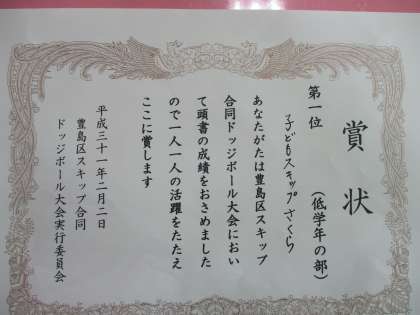 賞状
第一位　（低学年の部）
子どもスキップさくら
あなたがたは豊島区スキップ
合同ドッジボール大会におい
て頭書の成績をおさめました
ので一人一人の活躍をたたえ
ここに賞します
平成三十一年二月二日
豊島区スキップ合同
ドッジボール大会実行委員会